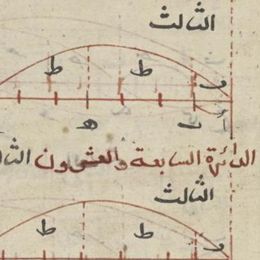 الثالث
ط ط و
ه ب ا
الدائرة السابعة والعشرون الثا
الثالث
ط ط و